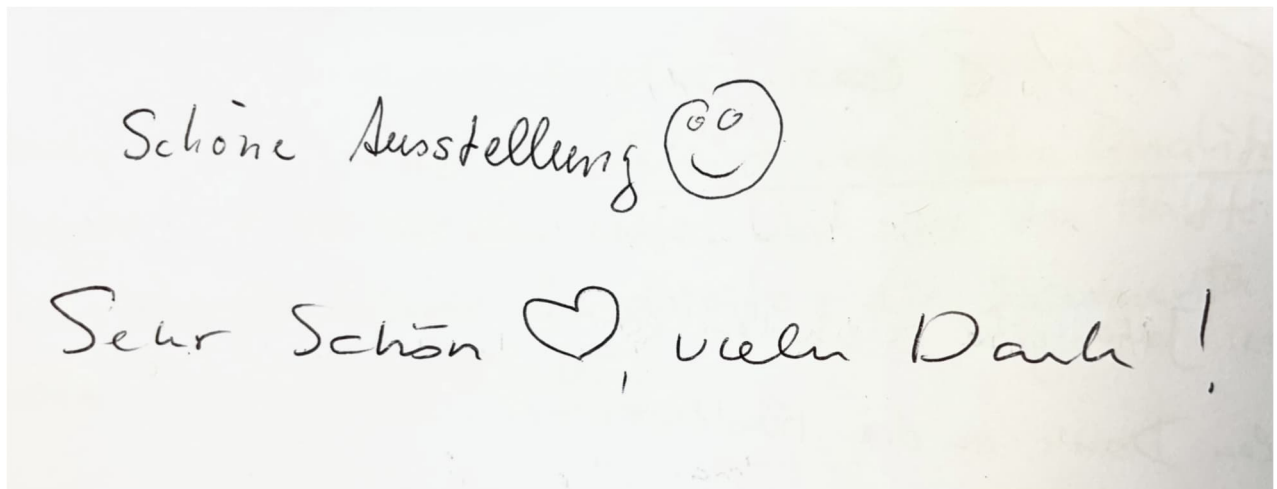 Schöne Ausstellung ☺
Sehr Schön ♡, vielen Dank!